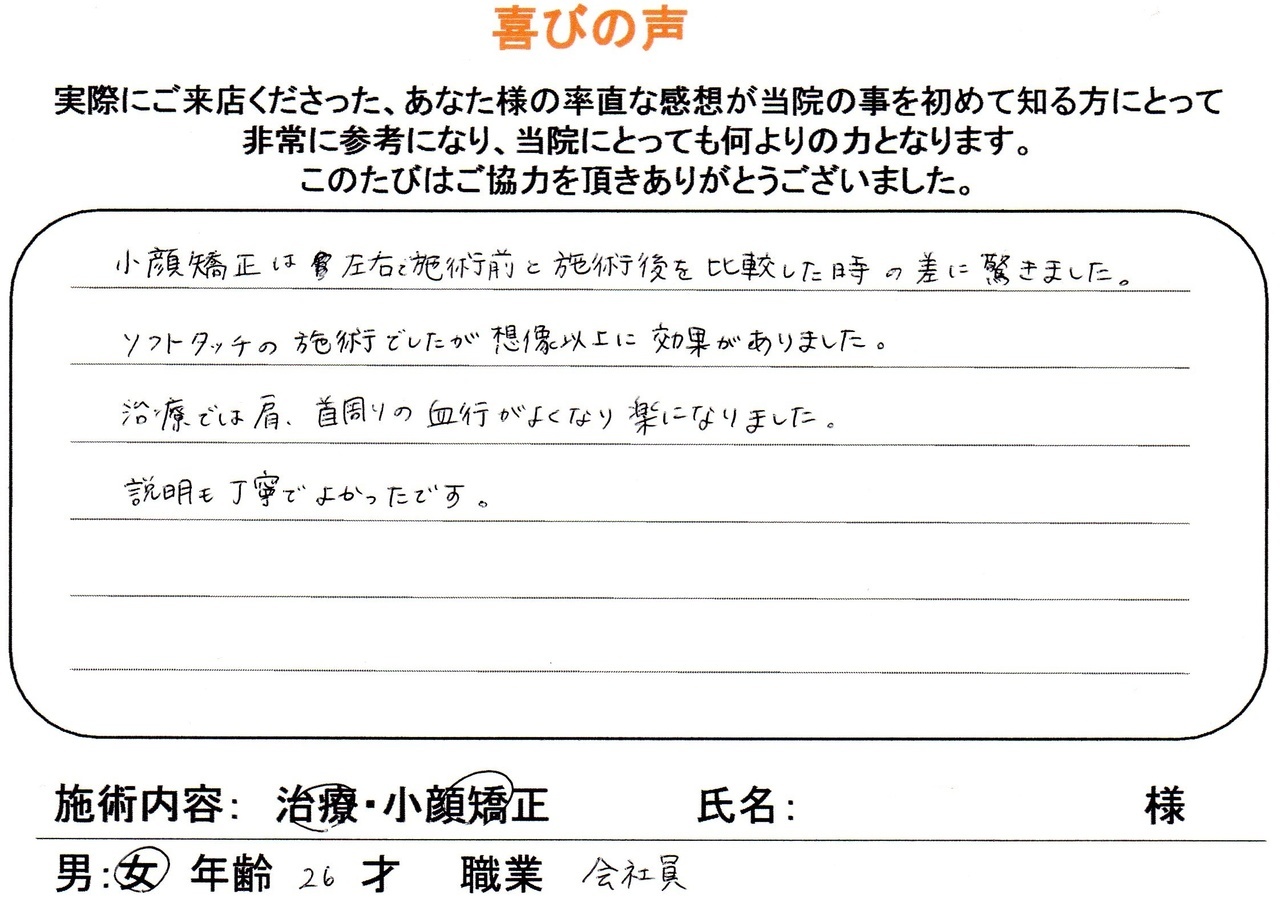 喜びの声
実際にご来店くださった、あなた様の率直な感想が当院の事を初めて知る方にとって
非常に参考になり、当院にとっても何よりの力となります。
このたびはご協力を頂きありがとうございました。
小顔矯正は 左右で施術前と施術後を比較した時の差に驚きました。
ソフトタッチの施術でしたが想像以上に効果がありました。
治療では肩、首周りの血行がよくなり楽になりました。
説明も丁寧でよかったです。
施術内容: 治療・小顔矯正 氏名: 様
男:女 年齢 26 才 職業 会社員